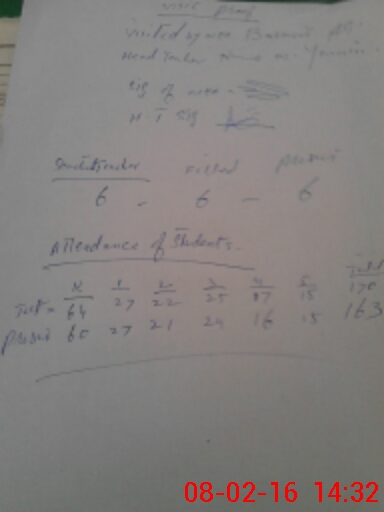 Visit Proof
Visited by MEO
Head Teacher Name
Sig of MEO =
H T Sig
Sanctioned Teacher Filled Present
6 - 6 - 6
Attendance of Students.
N 1 2 3 4 5 Total
Tot = 64 27 22 25 17 15 170
Present 60 27 21 24 16 15 163
08-02-16 14:32